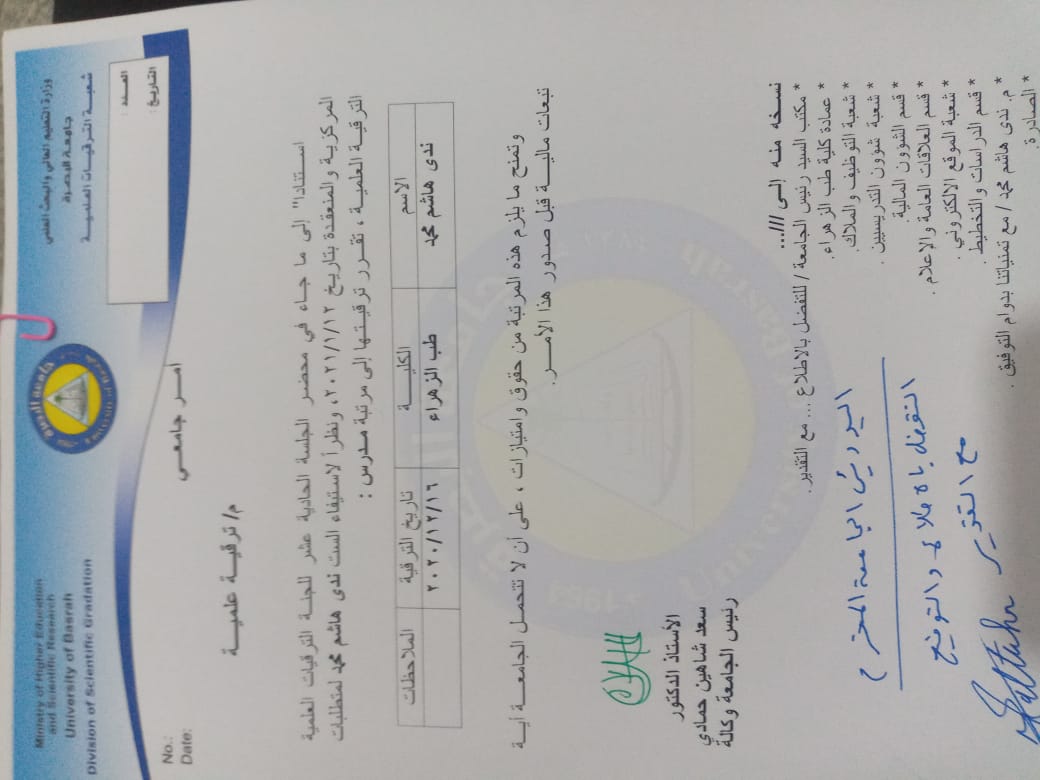 Ministry of Higher Education
and Scientific Research
University of Basrah
Division of Scientific Gradation
No.:
Date:
وزارة التعليم العالي والبحث العلمي
جامعة البصرة
شعبة الترقيات العلمية
العدد:
التاريخ:
جامعة البصرة
أمر جامعي
م/ ترقية علمية
استنادا" إلى ما جاء في محضر الجلسة الحادية عشر للجنة الترقيات العلمية
المركزية والمنعقدة بتاريخ ٢٠٢١/١/١٢، ونظراً لاستيفاء الست ندى هاشم محمد لمتطلبات
الترقية العلمية ، تقرر ترقيتها إلى مرتبة مدرس :
الاسم الكلية تاريخ الترقية الملاحظات
ندى هاشم محمد طب الزهراء ٢٠٢٠/١٢/١٦
وتمنح ما يلزم هذه المرتبة من حقوق وامتيازات ، على أن لا تتحمل الجامعة أية
تبعات مالية قبل صدور هذا الأمر.
University of Basrah
1964
الأستاذ الدكتور
سعد شاهين حمادي
رئيس الجامعة وكالة
نسخه منه إلى ///...
* مكتب السيد رئيس الجامعة / للتفضل بالاطلاع ... مع التقدير .
* عمادة كلية طب الزهراء.
* شعبة التوظيف والملاك.
* شعبة شؤون التدريسيين .
* قسم الشؤون المالية.
* قسم العلاقات العامة والإعلام .
* شعبة الموقع الالكتروني .
* قسم الدراسات والتخطيط
* م. ندى هاشم محمد / مع تمنياتنا بدوام التوفيق .
* الصادرة.
السيد رئيس الجامعة المحترم
التفضل بالاطلاع والتوقيع
مع التقدير